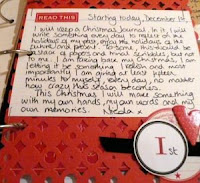 READ THIS
Starting today, December 1st,
I will keep a Christmas Journal. In it, I will
write something every day to reflect on the
holidays of my past, enjoy the holidays of the
current and present. To some, this should be
a of papers and mail scribbles, but not
to me. I am taking back my Christmas. I am
letting it be something I relish and most
importantly, I am giving at least fifteen
minutes to myself, every day, no matter
how crazy this season becomes.
This Christmas I will make something
with my own hands, my own words and my
own memories.
1st